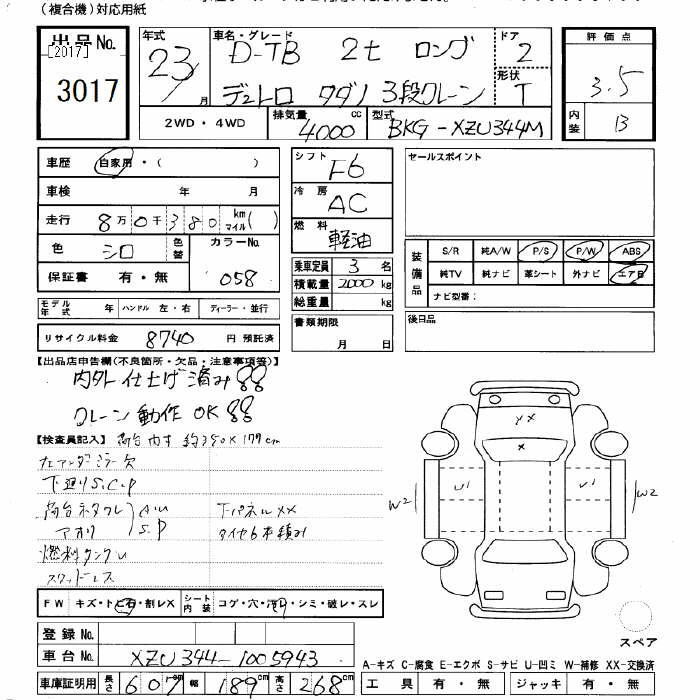 (複合機)対応用紙
出品No.
[2017]
3017
年式
23 月
車名・グレード
D-TB 2t ロング
デュトロ タダノ 3段クレーン
ドア
2
形状
T
評価点
3.5
内装
B
2WD・4WD
排気量 4000 cc
型式 BKG-XZU344M
車歴 自家用・( )
車検 年 月
走行 8万0千380 km マイル( )
色 シロ 色替
カラーNo. 058
保証書 有・無
モデル年式 年 ハンドル 左・右 ディーラー・並行
リサイクル料金 8740 円 預託済
シフト F6
冷房 AC
燃料 軽油
乗車定員 3 名
積載量 2000 kg
総重量 kg
書類期限
月 日
セールスポイント
装備品
S/R 純A/W P/S P/W ABS
純TV 純ナビ 革シート 外ナビ エアB
ナビ型番:
後日品
【出品店申告欄(不良箇所・欠品・注意事項等)】
内外仕上げ済み
クレーン動作OK
【検査員記入】 荷台内寸 約350×177cm
左アンダーミラー欠
下廻りS.C.P
アオリ S.P
下パネルXX
タイヤ6本積み
燃料タンクU
スタッドレス
FW キズ・トビ石・割レX
シート内装 コゲ・穴・汚レ・シミ・破レ・スレ
XX
X
W2 U1 U1 W2
スペア
登録No.
車台No. XZU344-1005943
車庫証明用 長さ 607 cm 幅 189 cm 高さ 268 cm
A-キズ C-腐食 E-エクボ S-サビ U-凹ミ W-補修 XX-交換済
工具 有・無 ジャッキ 有・無